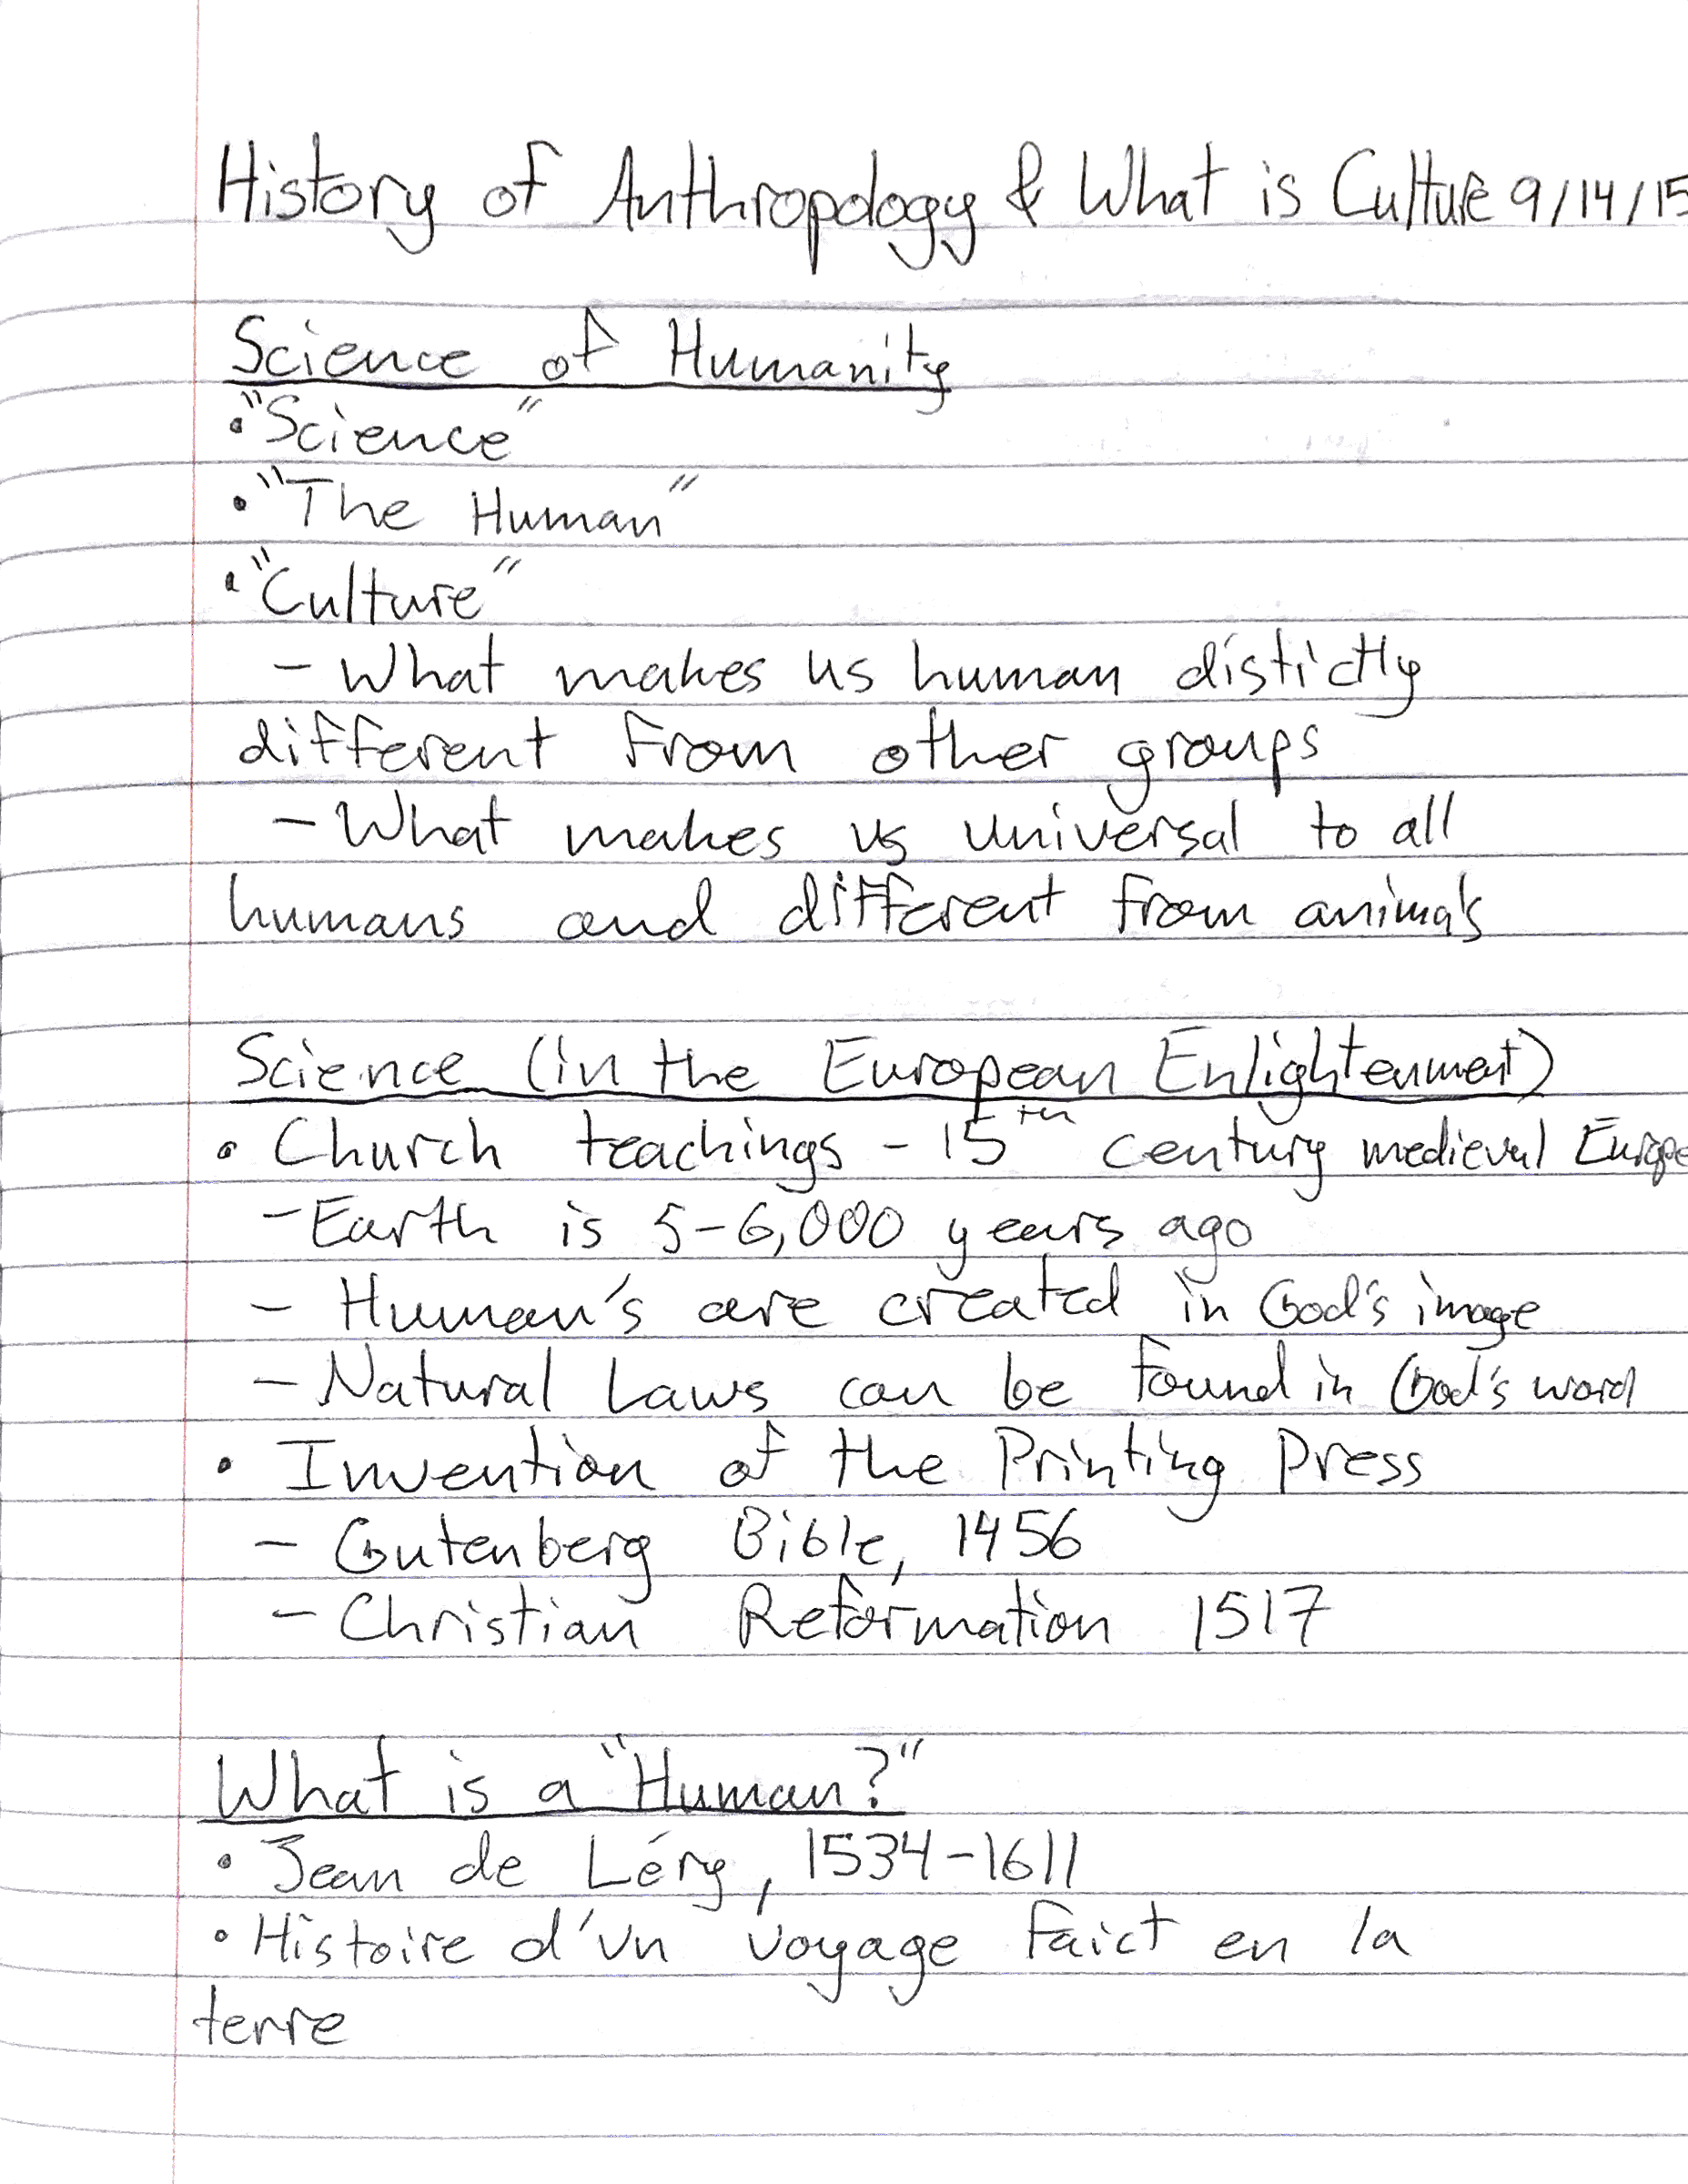 History of Anthropology & What is Culture 9/14/15
Science of Humanity
• "Science"
• "The Human"
• "Culture"
- What makes us human distictly
different from other groups
- What makes us universal to all
humans and different from animals
Science (in the European Enlightenment)
• Church teachings - 15th century medieval Europe
- Earth is 5-6,000 years ago
- Human's are created in God's image
- Natural Laws can be found in God's word
• Invention of the Printing Press
- Gutenberg Bible, 1456
- Christian Reformation 1517
What is a "Human?"
• Jean de Léry, 1534-1611
• Histoire d'vn voyage faict en la
terre